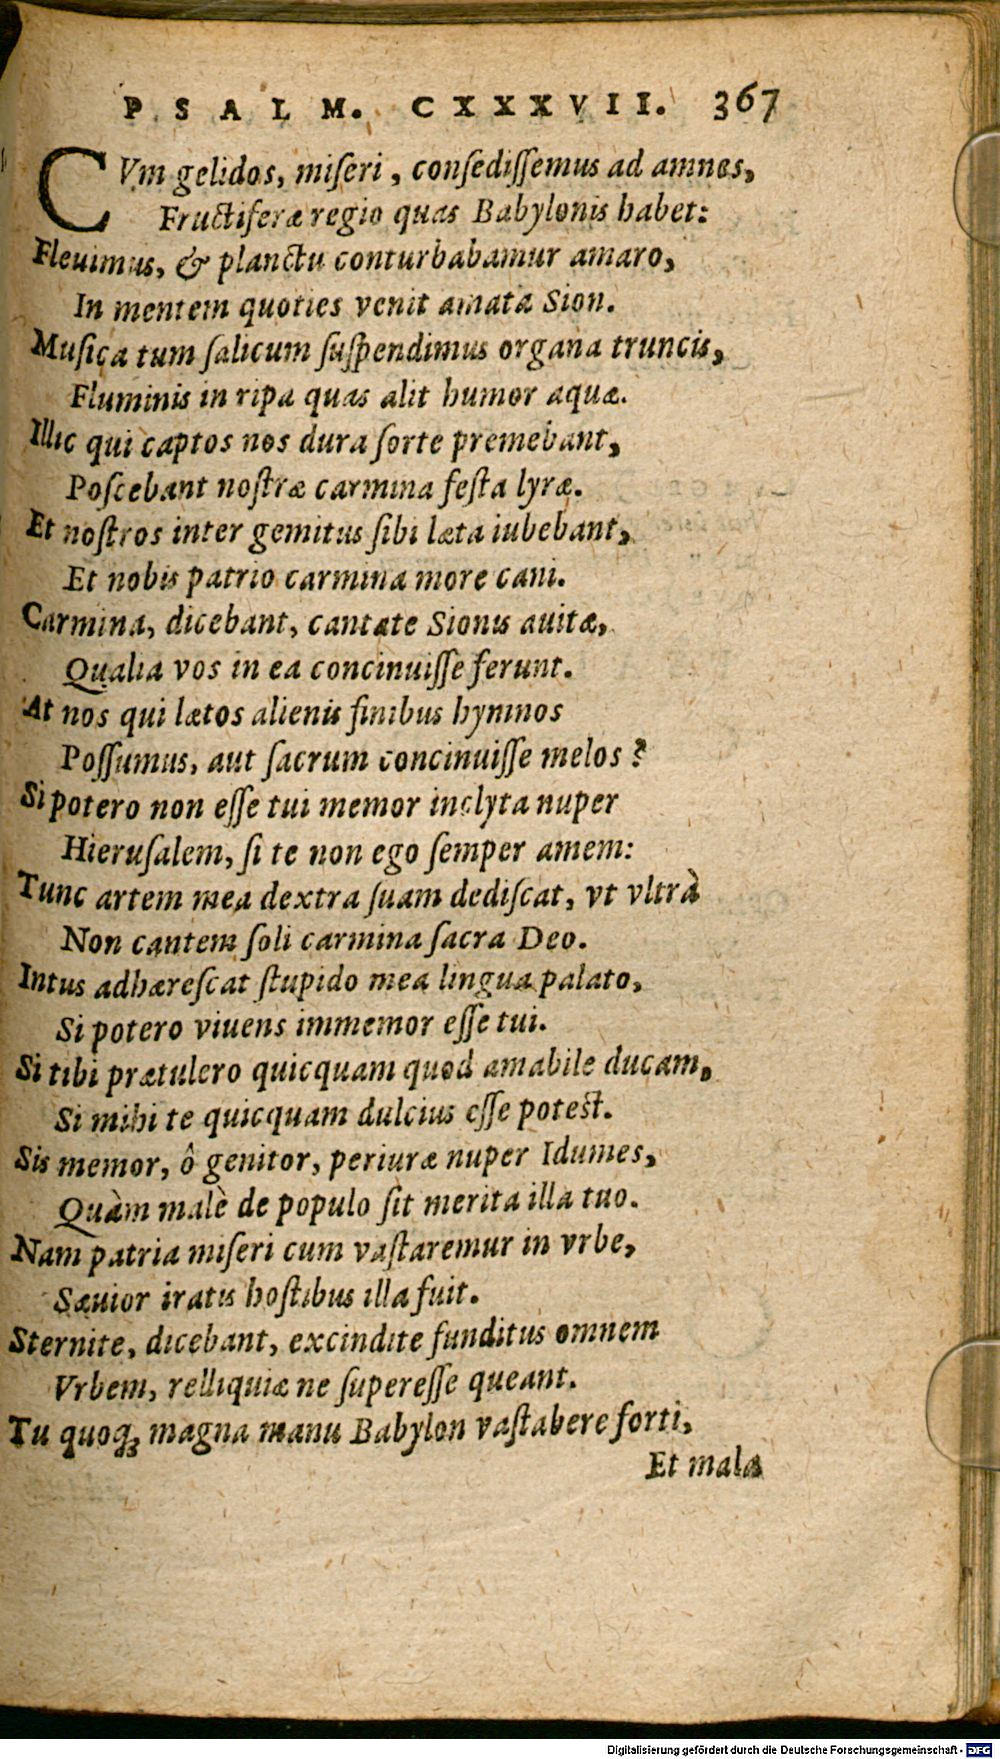 PSALM. CXXXVII. 367
CVm gelidos, miſeri, conſediſſemus ad amnes,
Fructiferæ regio quas Babylonis habet:
Fleuimus, & planctu conturbabamur amaro,
In mentem quoties venit amata Sion.
Muſica tum ſalicum ſuſpendimus organa truncis,
Fluminis in ripa quas alit humor aquæ.
Illic qui captos nos dura ſorte premebant,
Poſcebant noſtræ carmina feſta lyræ.
Et noſtros inter gemitus ſibi læta iubebant,
Et nobis patrio carmina more cani.
Carmina, dicebant, cantate Sionis auitæ,
Qualia vos in ea concinuiſſe ferunt.
At nos qui lætos alienis finibus hymnos
Poſſumus, aut ſacrum concinuiſſe melos?
Si potero non eſſe tui memor inclyta nuper
Hieruſalem, ſi te non ego ſemper amem:
Tunc artem mea dextra ſuam dediſcat, vt vltrà
Non cantem ſoli carmina ſacra Deo.
Intus adhæreſcat ſtupido mea lingua palato,
Si potero viuens immemor eſſe tui.
Si tibi prætulero quicquam quod amabile ducam,
Si mihi te quicquam dulcius eſſe poteſt.
Sis memor, ô genitor, periuræ nuper Idumes,
Quàm malè de populo ſit merita illa tuo.
Nam patria miſeri cum vaſtaremur in vrbe,
Sæuior iratis hoſtibus illa fuit.
Sternite, dicebant, excindite funditus omnem
Vrbem, relliquiæ ne ſupereſſe queant.
Tu quoq; magna manu Babylon vaſtabere forti,
Et mala
Digitalisierung gefördert durch die Deutsche Forschungsgemeinschaft - DFG